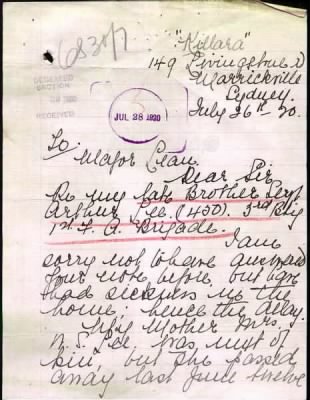 6830/7
"Killara"
149 Livingstone Rd
Marrickville
Sydney.
July 26th 20.
DECEASED
SECTION
RECEIVED
JUL 28 1920
To
Major Lean.
Dear Sir
Re my late Brother Sergt
Arthur Lee. (450). 3rd Bty
1st F. A. Brigade.
I am
sorry not to have answered
your note before, but have
had sickness in the
home; hence the delay.
My Mother Mrs.
Lee. was next of
kin, but she passed
away last June twelve